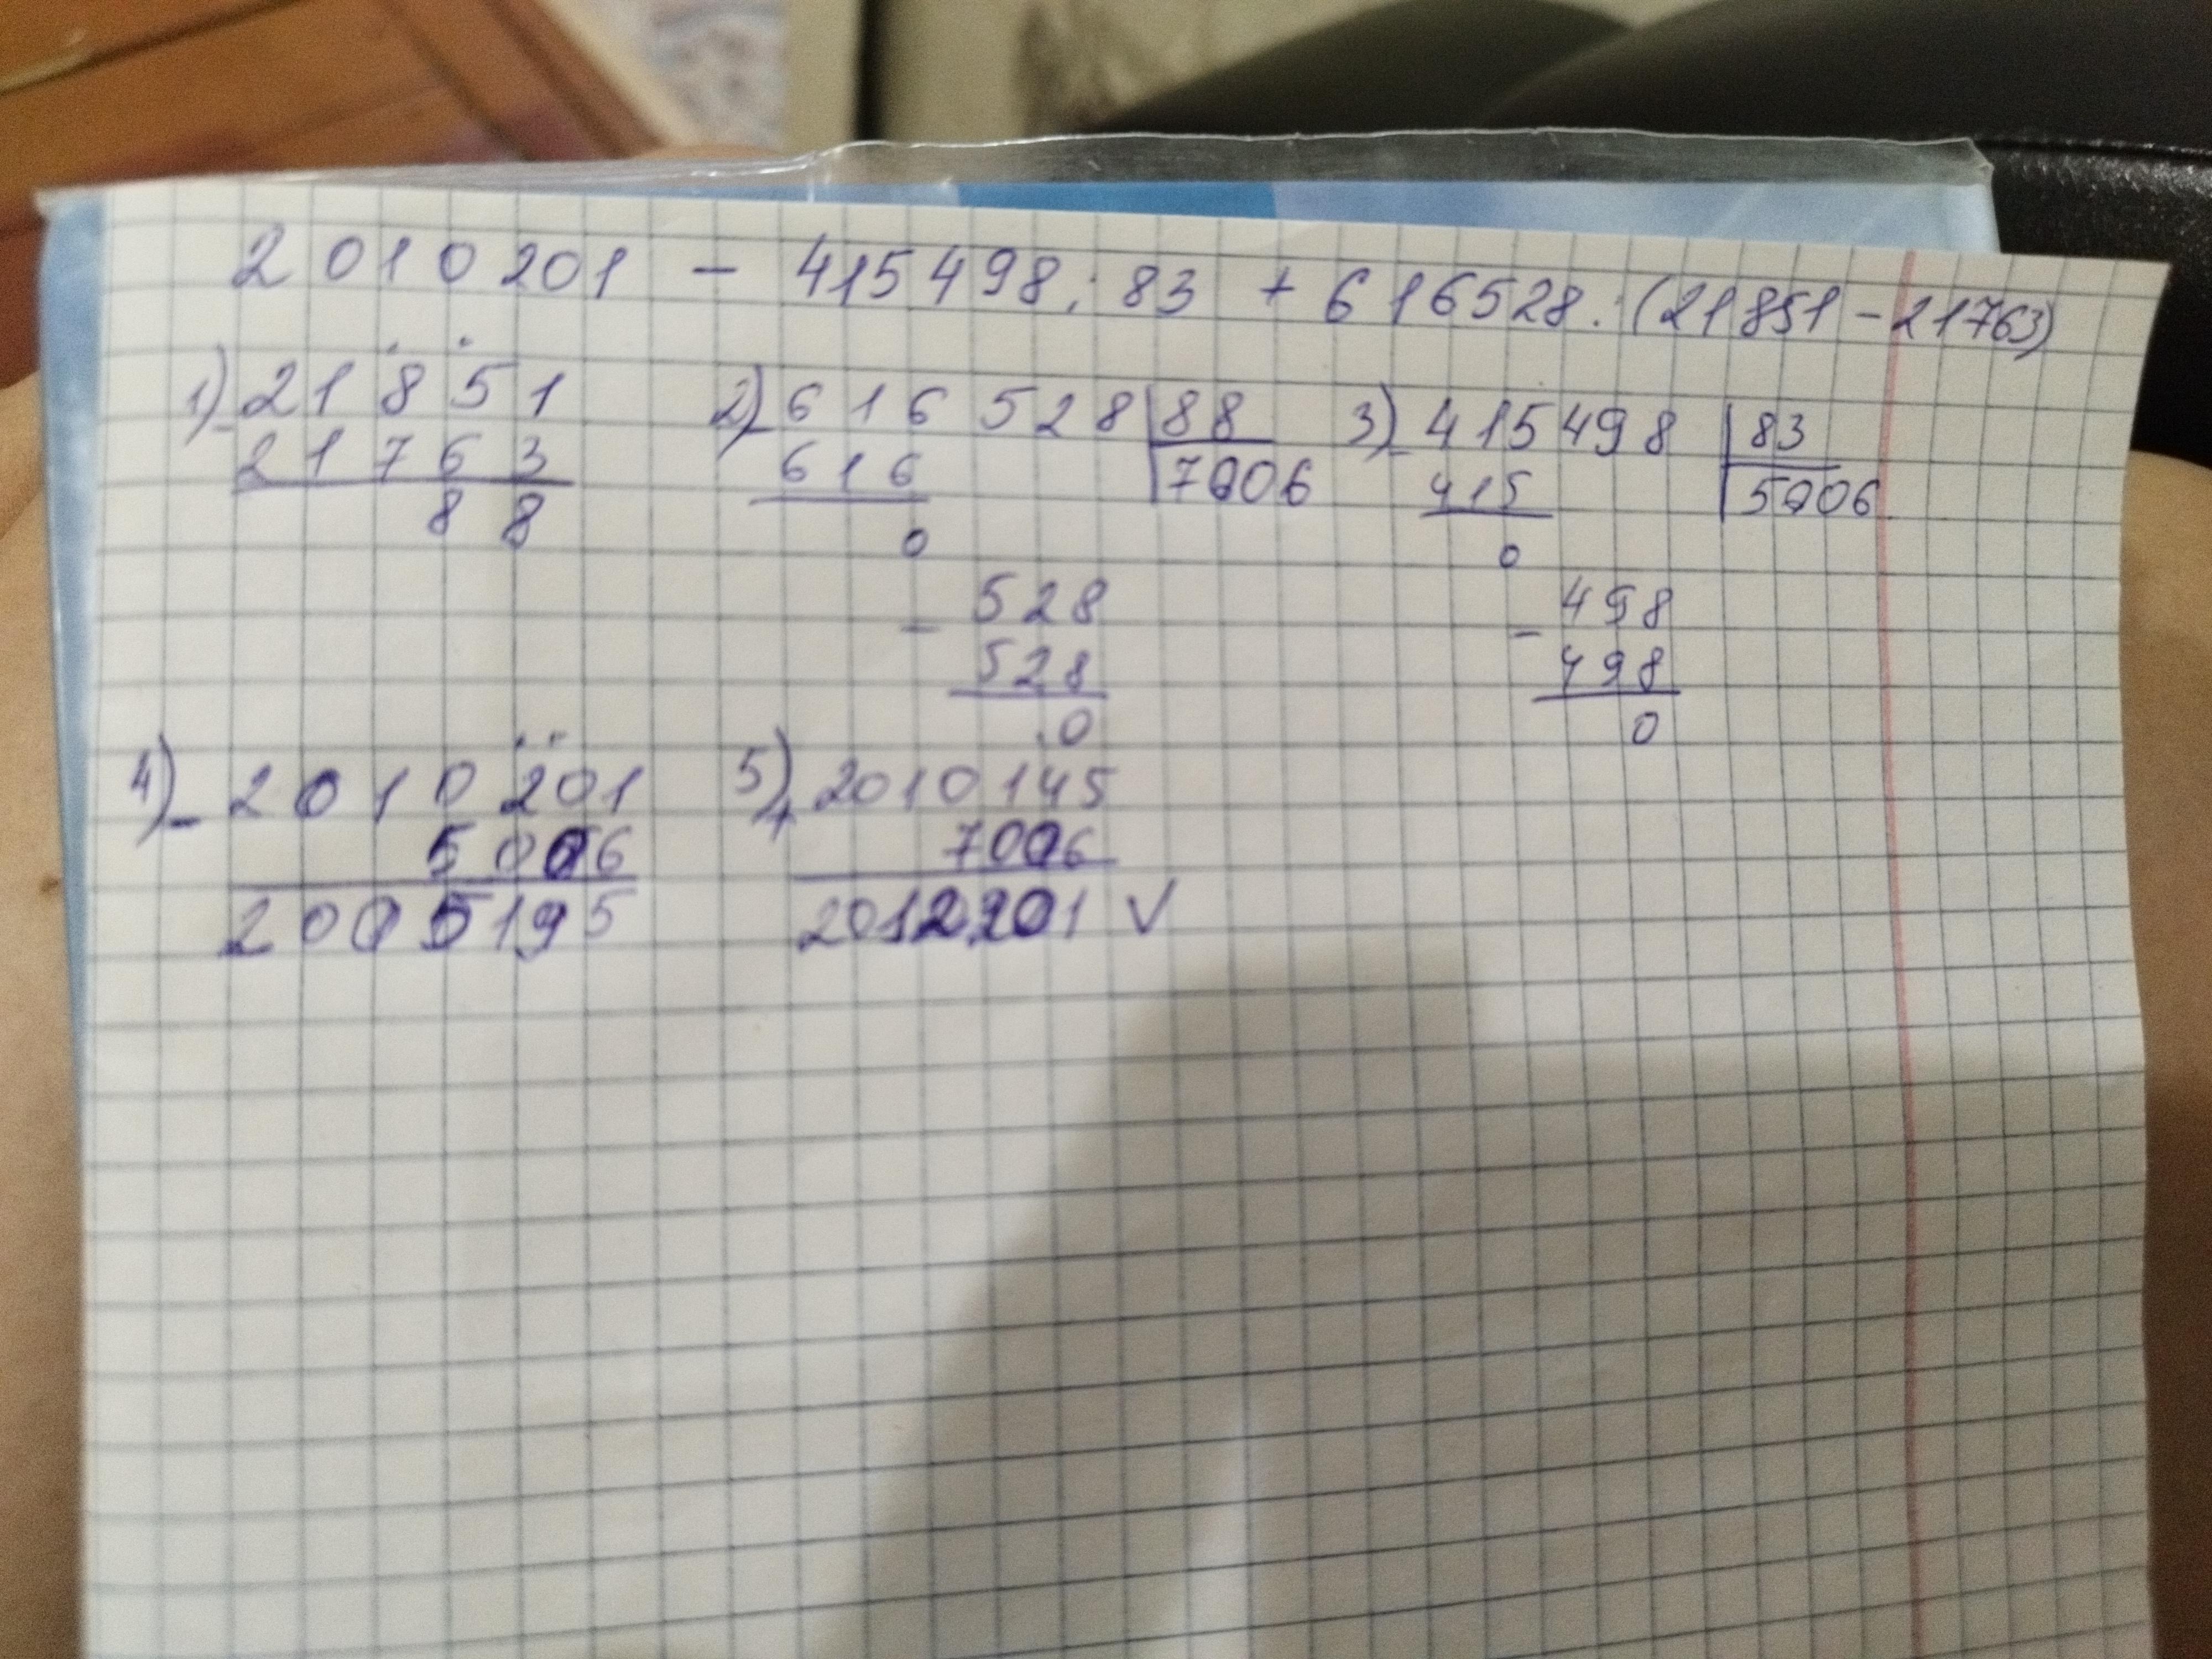 2010201 - 415498 : 83 + 616528 : (21851 - 21763)
1) - 21851 2) - 616528 | 88 3) - 415498 | 83
21763 616 | 7006 415 | 5006
88 0 0
- 528 - 498
528 498
0 0
4) - 2010201 5) + 2010145
5006 7006
2005195 2012201 ✓